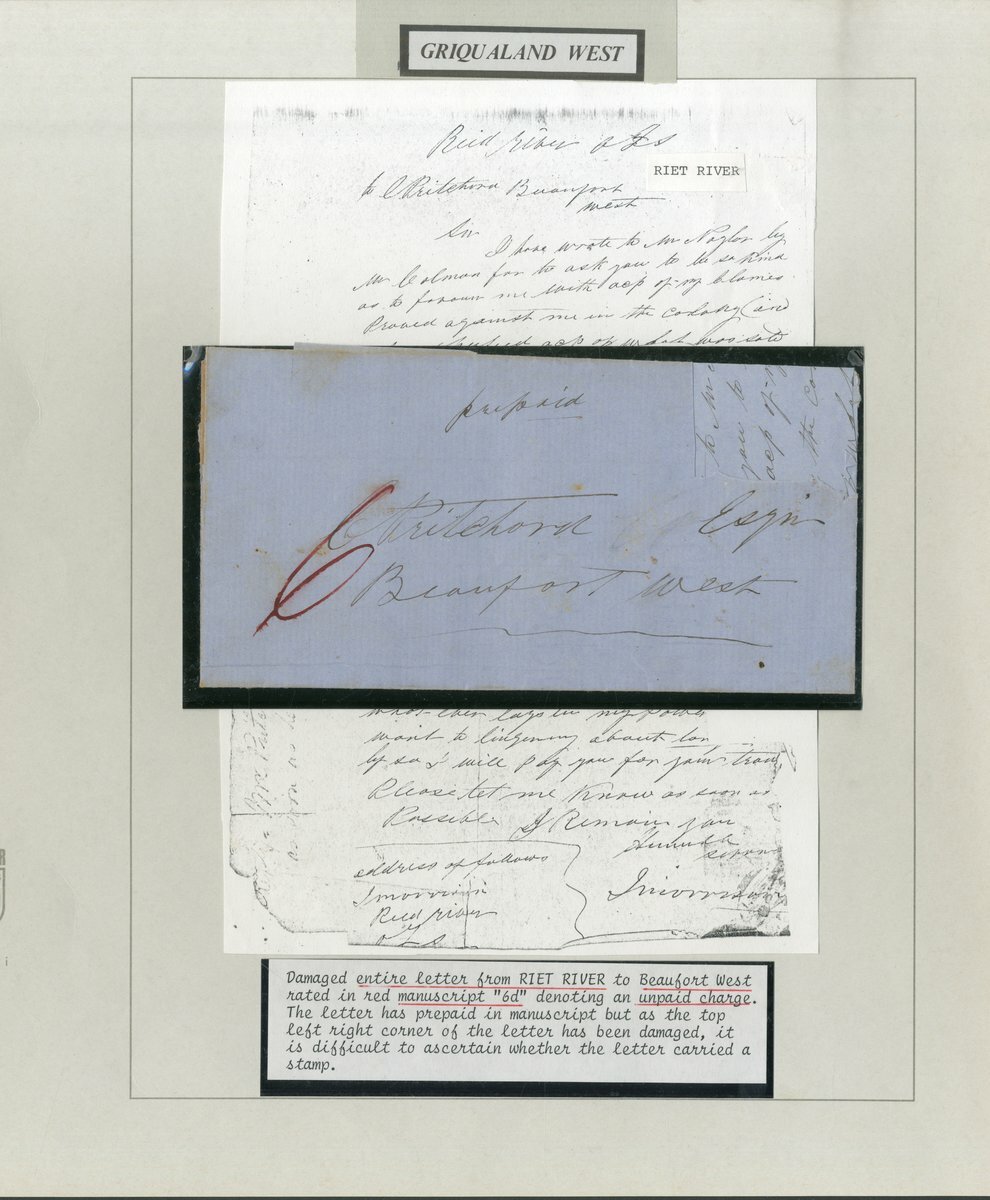 GRIQUALAND WEST
Reid river
RIET RIVER
to C Pritchard Beaufort
West
Sir
I have wrote to Mr Naylor by
Mr Colman for to ask you to be so kind
as to favour me with acp of my blames
Proved against me in the colony and
acp of what was sold
prepaid
to Mr
you to
acp of
the Co
6
C Pritchard Esqr
Beaufort West
what ever lays in my power
want to lingering about
by so I will pay you for your
Please let me know as soon as
Possible I Remain you
Humble
address of follows
Reid river
Damaged entire letter from RIET RIVER to Beaufort West
rated in red manuscript "6d" denoting an unpaid charge.
The letter has prepaid in manuscript but as the top
left right corner of the letter has been damaged, it
is difficult to ascertain whether the letter carried a
stamp.